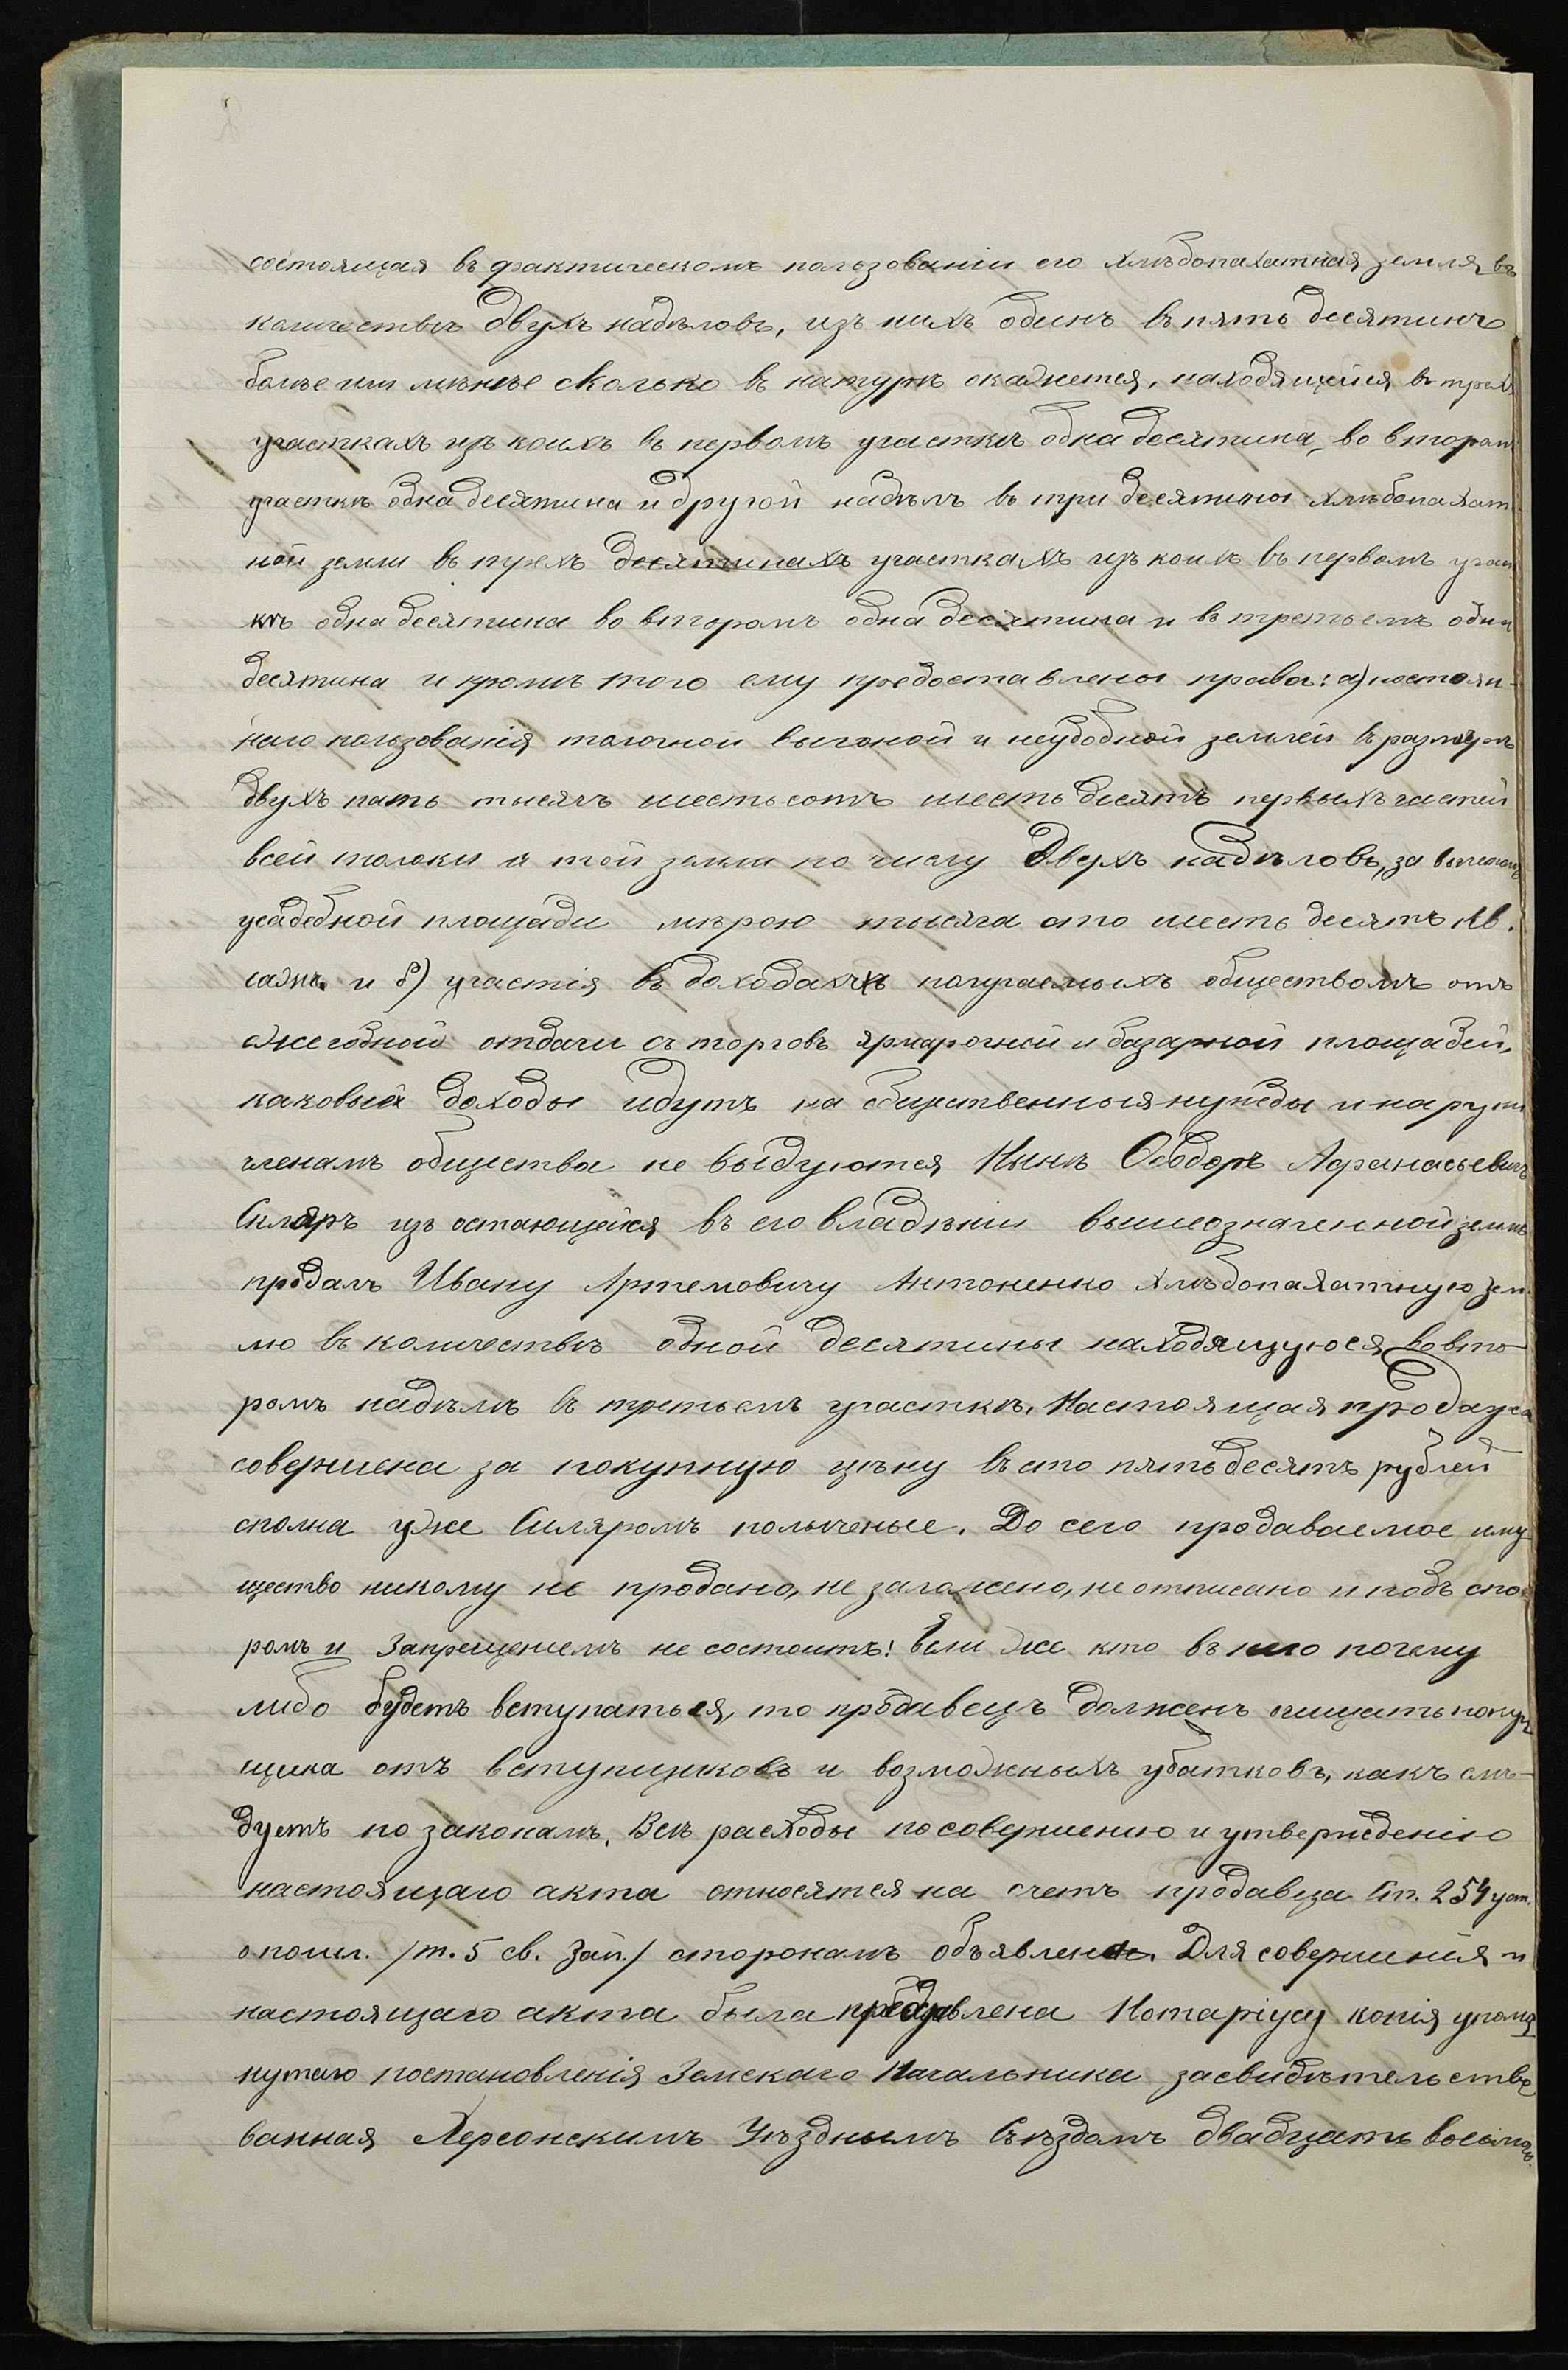 состоящая въ фактическомъ пользованіи его хлѣбопахатная земля въ
количествѣ двухъ надѣловъ, изъ нихъ одинъ въ пять десятинъ
болѣе или менѣе сколько въ натурѣ окажется, находящейся въ трехъ
участкахъ изъ коихъ въ первомъ участкѣ одна десятина, во второмъ
участкѣ одна десятина и другой надѣлъ въ три десятины хлѣбопахат
ной земли въ трехъ десятинахъ участкахъ изъ коихъ въ первомъ участ
кѣ одна десятина во второмъ одна десятина и въ третьемъ одна
десятина и кромѣ того ему предоставлены права: а) постоян-
наго пользованія толочной выгоной и неудобной землей въ размѣрѣ
двухъ пять тысячъ шестьсотъ шестьдесятъ первыхъ частей
всей толоки и той земли по числу двухъ надѣловъ, за вычетомъ
усадебной площади мѣрою тысяча сто шестьдесятъ кв.
сажъ. и б) участія въ доходахъ получаемыхъ обществомъ отъ
ежегодной отдачи съ торговъ ярмарочной и базарной площадей,
каковыя доходы идутъ на общественныя нужды и на руки
членамъ общества не выдуются Нынѣ Ѳеодоръ Афанасьевичъ
Скляръ изъ остающейся въ его владѣніи вышеозначенной земли
продалъ Ивану Артемовичу Антоненко хлѣбопахатную зем
лю въ количествѣ одной десятины находящуюся во вто
ромъ надѣлѣ въ третьемъ участкѣ. Настоящая продажа
совершена за покупную цѣну въ сто пятьдесятъ рублей
сполна уже Скляромъ полученые. До сего продаваемое иму-
щество никому не продано, не заложено, не отписано и подъ спо
ромъ и запрещеніемъ не состоитъ: Если же кто въ него почему
либо будетъ вступаться, то продавецъ долженъ очищать покуп
щика отъ вступщиковъ и возможныхъ убытковъ, какъ слѣ-
дуетъ по законамъ. Всѣ расходы по совершенію и утвержденію
настоящаго акта относятся на счетъ продавца Ст. 254 уст.
о пошл. /т. 5 св. Зак./ сторонамъ объявлена. Для совершенія
настоящаго акта была предъявлена Нотаріусу копія упомя
нутаго постановленія Земскаго Начальника засвидѣтельство
ванная Херсонскимъ Уѣзднымъ Съѣздомъ двадцать восьмаго